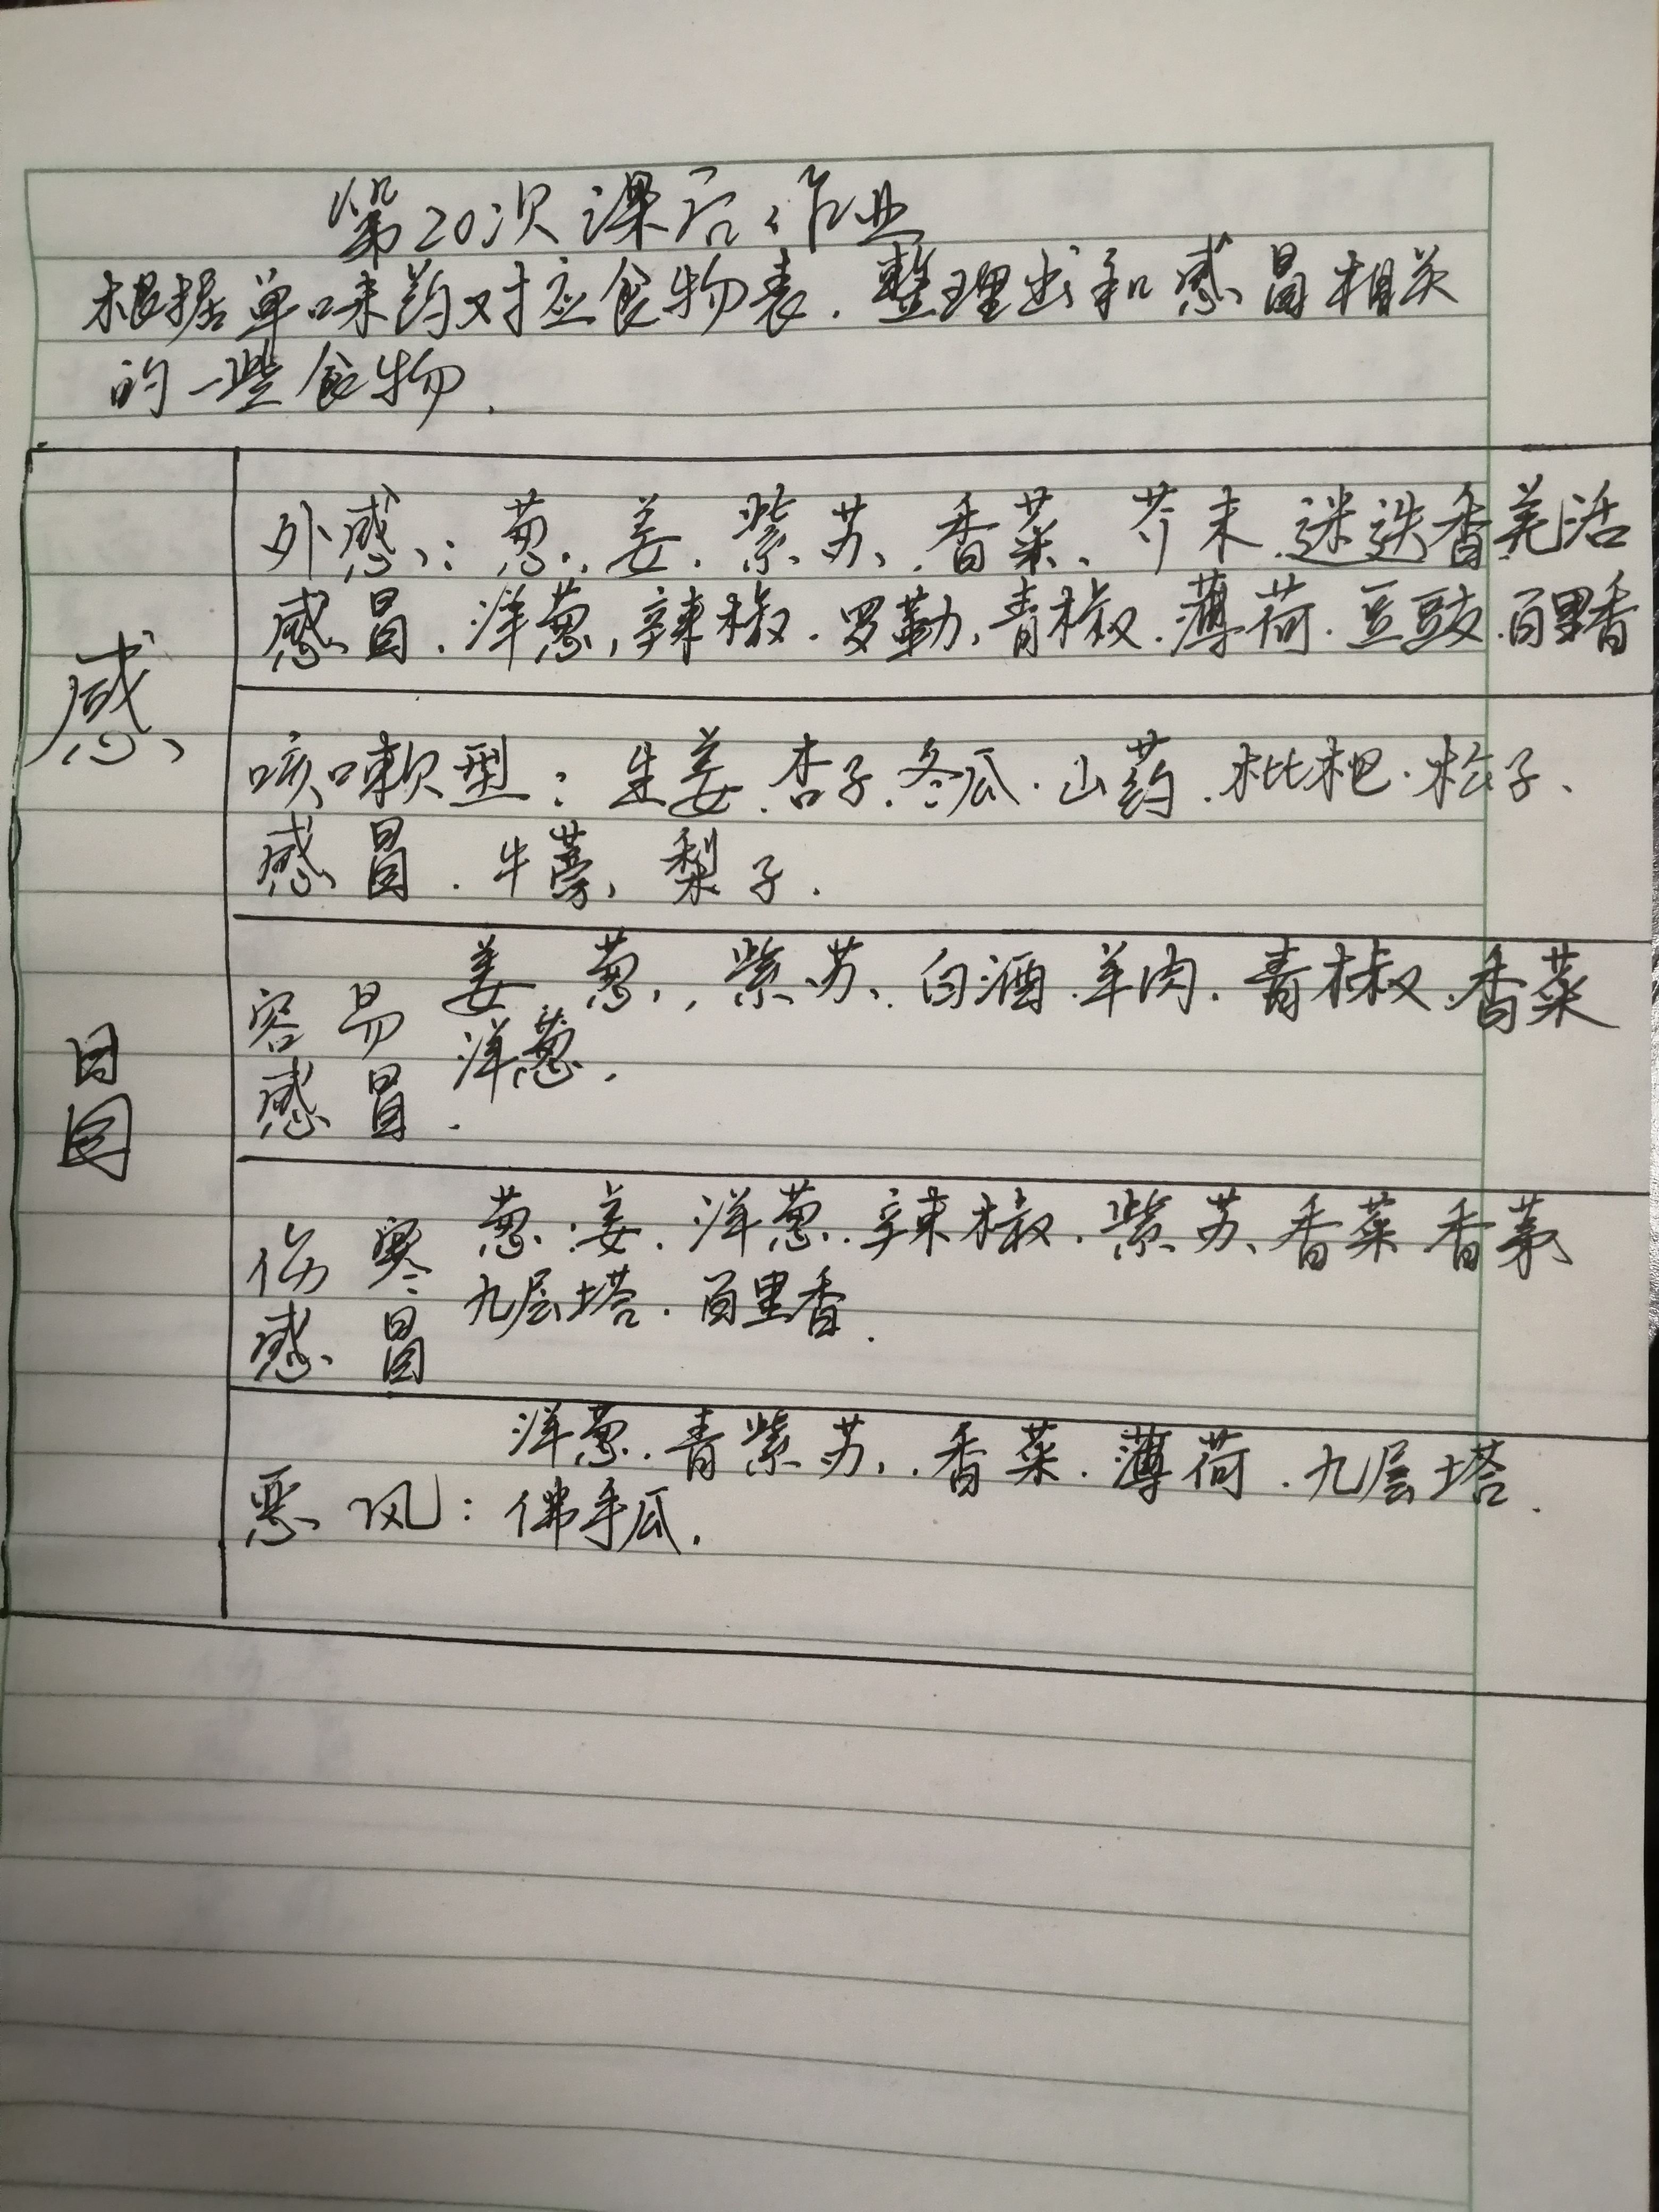 第20次课后作业
根据单味药对应食物表.整理出和感冒相关
的一些食物.
感冒
外感:葱、姜.紫苏、香菜、芥末.迷迭香羌活
感冒.洋葱,辣椒.罗勒,青椒.薄荷.豆豉.百里香
咳嗽型:生姜.杏子.冬瓜.山药.枇杷.松子、
感冒.牛蒡,梨子.
容易 姜 葱,紫苏、白酒.羊肉.青椒.香菜
感冒. 洋葱.
伤寒 葱.姜.洋葱.辣椒.紫苏、香菜 香茅
感冒 九层塔.百里香.
洋葱.青紫苏,香菜.薄荷.九层塔.
恶风:佛手瓜.